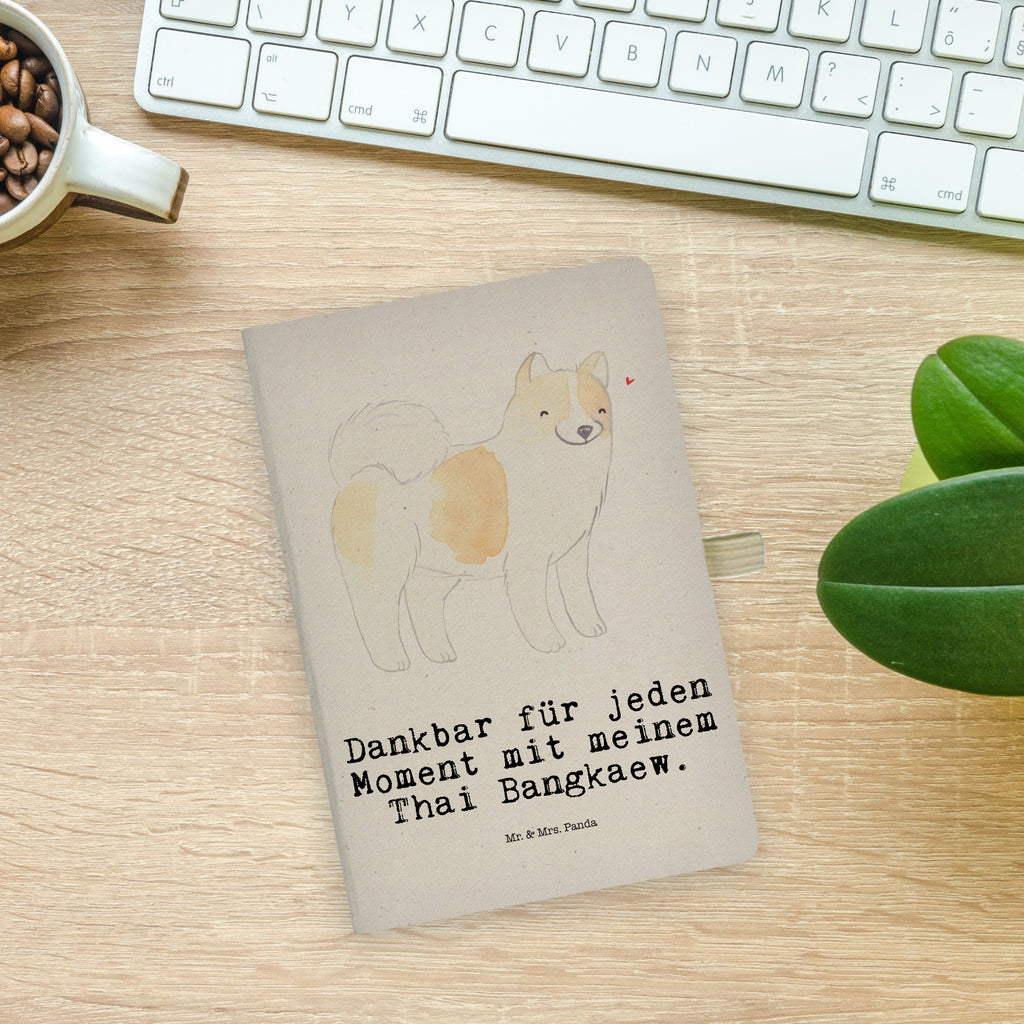 Y X C V B N M K L
ctrl alt cmd ⌘ ⌘ cmd
Dankbar für jeden
Moment mit meinem
Thai Bangkaew.
Mr. & Mrs. Panda